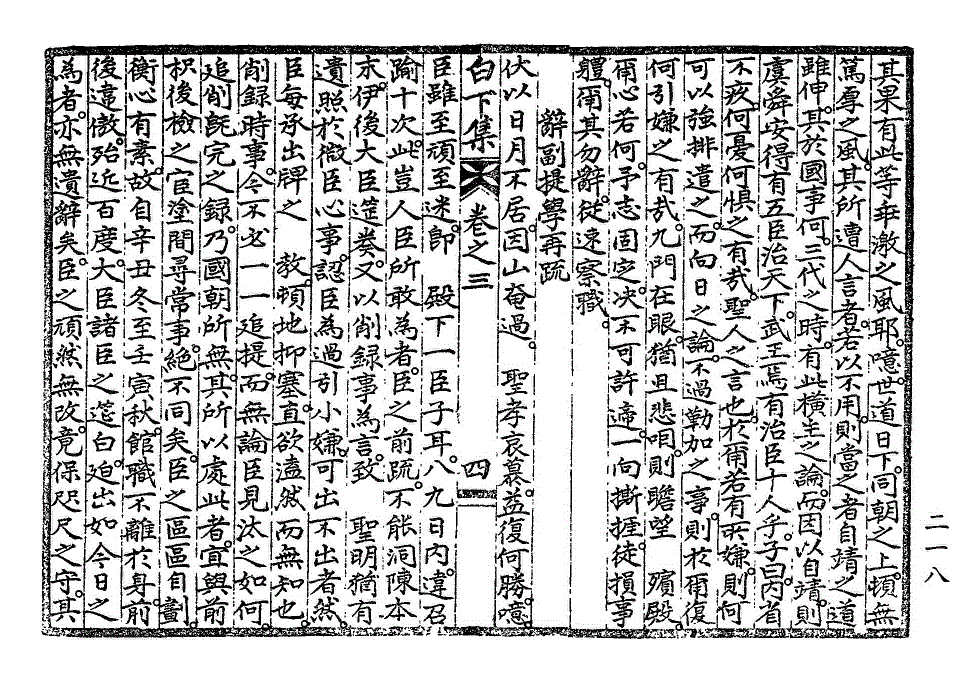 其果有此等乖激之風耶。噫世道日下。同朝之上。頓無
篤厚之風。其所遭人言者。若以不用。則當之者自靖之道
雖伸。其於國事何。三代之時。有此橫生之論。而因以自靖。則
虞舜安得有五臣治天下。武王焉有治臣十人乎。子曰。內省
不疚。何憂何懼之有哉。聖人之言也。於爾若有所嫌。則何
可以強排遣之。而向日之論。不過勒加之事。則於爾復
何引嫌之有哉。九門在眼。猶且悲咽。則瞻望 殯殿。
爾心若何。予志固定。决不可許遞。一向撕捱。徒損事
軆。爾其勿辭。從速察職。
辭副提學再疏
伏以日月不居。因山奄過。 聖孝哀慕。益復何勝。噫
白下集 卷之三 四
臣雖至頑至迷。卽 殿下一臣子耳。八九日內。違召
踰十次。此豈人臣所敢爲者。臣之前疏。不能洞陳本
末。伊後大臣筵奏。又以削錄事爲言。致 聖明猶有
遺照於微臣心事。認臣爲過引小嫌。可出不出者然。
臣每承出牌之 敎。頓地抑塞。直欲溘然而無知也。
削錄時事。今不必一一追提。而無論臣見汰之如何。
追削旣完之錄。乃國朝所無。其所以處此者。宜與前
枳後檢之宦塗間尋常事。絶不同矣。臣之區區自劃。
衡心有素。故自辛丑冬至壬寅秋。館職不離於身。前
後違傲。殆近百度。大臣諸臣之筵白。迫出如今日之
爲者。亦無遺辭矣。臣之頑然無改。竟保咫尺之守。其
二一八